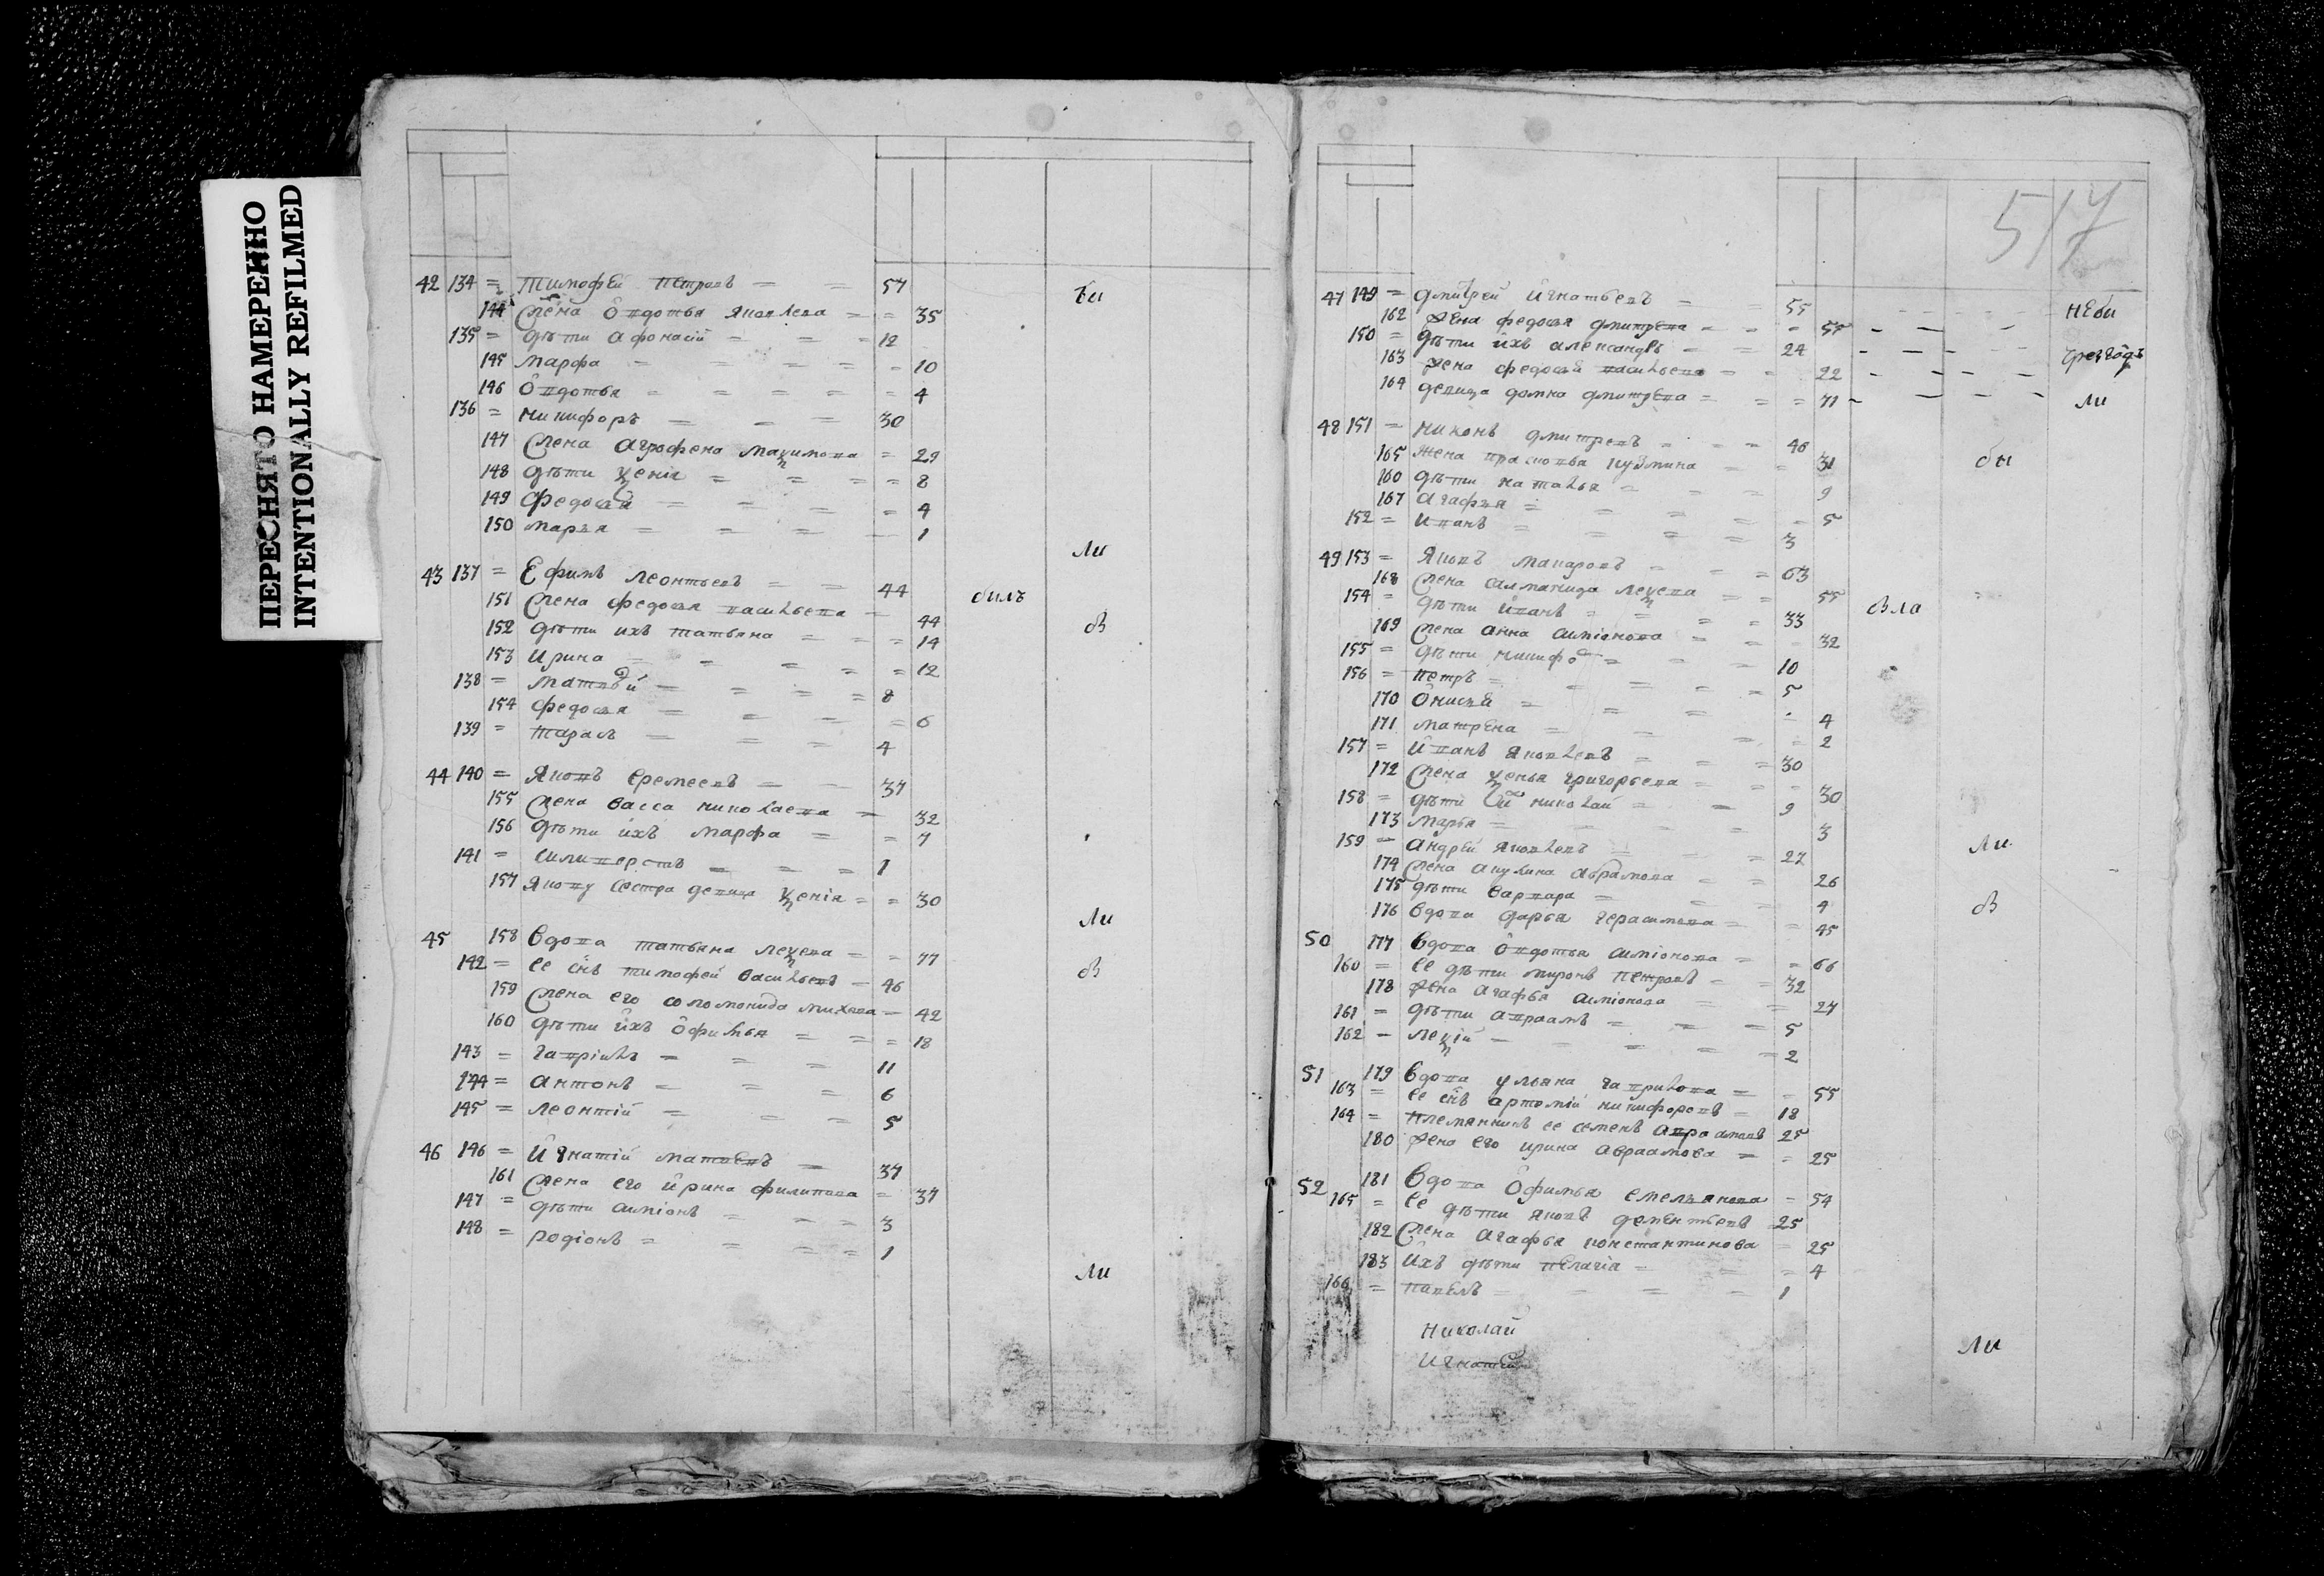 ПЕРЕСНЯТО НАМЕРЕННО
INTENTIONALLY REFILMED
42 134 = Тимофей Петровъ = = 57 бы
144 жена Овдотья Яковлева = = 35
135 = дѣти Афонасій = = = 12
145 Марфа = = = = = 10
146 Овдотья = = = = = 4
136 = Никифоръ = = = 30
147 жена Аграфена Маѯимова = 29
148 дѣти Ѯенія = = = = 8
149 Федосья = = = = 4
150 Марья = = = = 1
ли
43 137 = Ефимъ Леонтьевъ = = 44 былъ
151 жена Федосья Васильева = 44 в
152 дѣти ихъ Татьяна = = = 14
153 Ирина = = = = = 12
138 = Матвѣй = = = = 8
154 Федосья = = = = 6
139 = Тарасъ = = = 4
44 140 = Яковъ Еремеевъ = = 37
155 жена Васса Николаева = 32
156 дѣти ихъ Марфа = = 7
141 = Силиверстъ = = = 1
157 Якову сестра девица Ѯенія = = 30
ли
45 158 Вдова Татьяна Леѯева = = 77
142 = Ее снъ Тимофей Васильевъ = 46 в
159 жена его Соломонида Михева = 42
160 дѣти ихъ Офимья = = = 18
143 = Гаврилъ = = = 11
144 = Антонъ = = = 6
145 = Леонтій = = = 5
46 146 = Игнатій Матвѣевъ = 37
161 жена его Ирина Филипова = 37
147 = дѣти Симіонъ = = = 3
148 = Родіонъ = = = = 1
ли
517
47 149 = Дмитрей Игнатьевъ = = 55 - - - небы
162 жена Федосья Дмитрева = = - 55 - - -
150 = дѣти ихъ Александръ = = 24 - - - чрезгодъ
163 жена Федосья Васильева = = 22 - - - -
164 девица Домна Дмитрева = = = 71 - - - - ли
48 151 = Никонъ Дмитревъ = = = 40
165 жена Прасковья Кузмина = = 31 бы
166 дѣти Наталья = = = 9
167 Агафья = = = = - 5
152 = Иванъ = = = = 3
49 153 = Яковъ Макаровъ = = = 63
168 жена Салманида Леѯева = = 55 вла
154 = дѣти Иванъ = = = = 33
169 жена Анна Симіонова = = - 32
155 = дѣти Никифо = = = 10
156 = Петръ = = = = = 5
170 Онисья = = = - 4
171 Матрена = = = = 2
157 = Иванъ Яковлевъ = = = 30
172 жена Ѯенья Григорьева = = - 30
158 = дѣти Николай = = 9
173 Марья = = = = 3
159 = Андрей Яковлевъ = = 27 ли
174 жена Акулина Абрамова = = 26
175 дѣти Варвара = = = 4
176 вдова Дарья Герасимова = = 45 в
50 177 Вдова Овдотья Симіонова = = 66
160 = Ее дѣти Миронъ Петровъ = = 32
178 жена Агафья Симіонова = = 27
161 = дѣти Авраамъ = = = 5
162 = Леѯій = = = = = 2
51 179 Вдова Ульяна Гаврилова = = 55
163 = Ее снъ Артомій Никифоровъ = 18
164 = Племянникъ ее Семенъ Авраамовъ 25
180 жена его Ирина Авраамова = = 25
52 181 Вдова Офимья Емельянова = 54
165 = Ее дѣти Яковъ Дементьевъ 25
182 жена Агафья Константинова 25
183 Ихъ дѣти Пелагія = = = 4
166 = Павелъ = = = = 1
Николай
ли